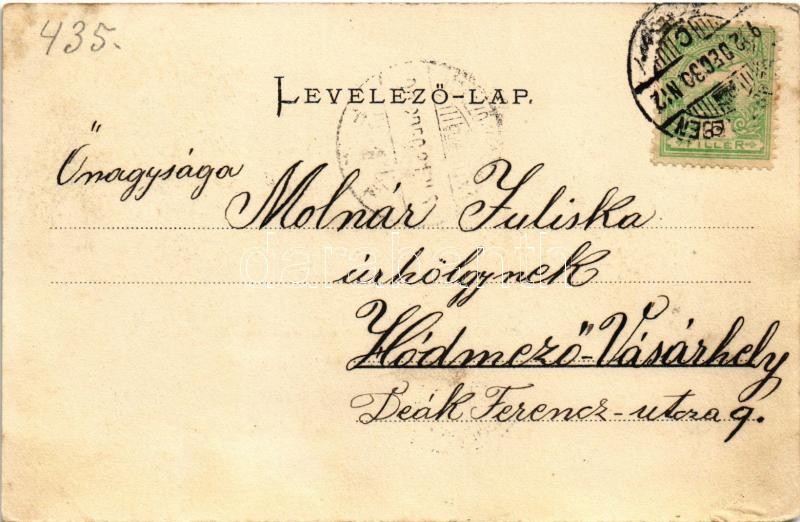 435.
LEVELEZŐ-LAP.
Őnagysága
Molnár Juliska
úrhölgynek
Hódmező-Vásárhely
Deák Ferencz-utcza 9.
FILLÉR
darabanth